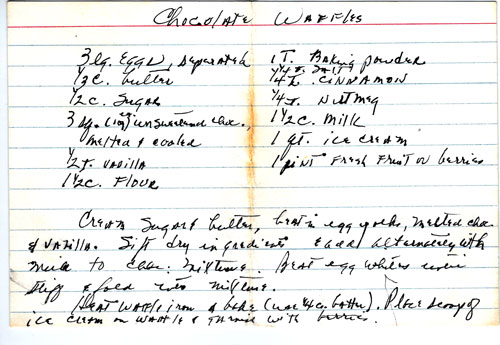 Chocolate Waffles
3 lg. Eggs, separated
1/2 c. butter
1/2 c. Sugar
3 sq. (1 oz) unsweetened choc.,
melted & cooled
1/2 t. vanilla
1 1/2 c. Flour
1 T. Baking powder
1/4 t. SALT
1/4 t. CINNAMON
1/4 t. Nutmeg
1 1/2 c. Milk
1 qt. ice cream
1 pint Fresh Fruit or berries
Cream Sugar & butter, beat in egg yolks, melted choc.
& vanilla. Sift dry ingredients & add alternately with
milk to choc. mixture. Beat egg whites until
stiff & fold into mixture.
Heat waffle iron & bake (use 1/4 c. batter). Place scoop of
ice cream on waffle & garnish with berries.